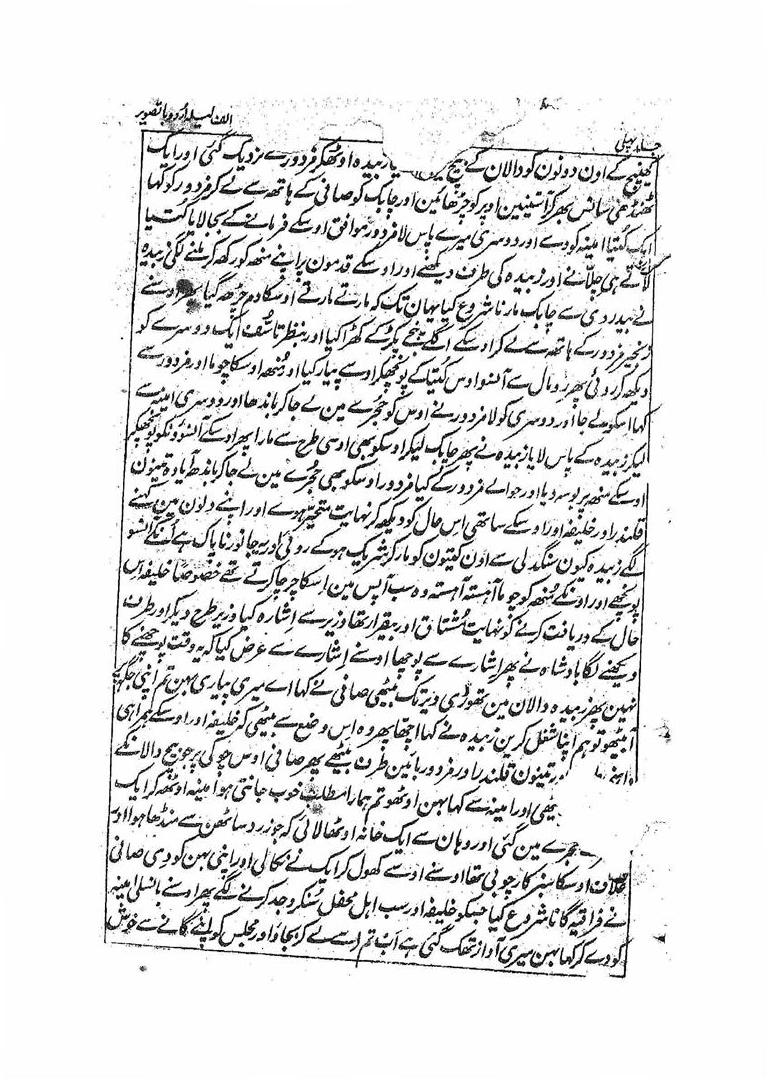 الف لیلہ اُردو باتصویر
جلد پہلی
کھینچ کے اون دونون کو دالان کے بیچ یا زبیدہ اوٹھکر فردور کے نزدیک گئی اور ایک
ٹھنڈھی سانس بھر کر آستینین اوپر کو چڑھائین اور چابک کو صافی کے ہاتھہ سے لے کر فردور کو کہا
ایک کُتیا امینہ کو دے اور دوسری میرے پاس لا فردور موافق اوسکے فرمانے کے بجا لایا کُتیا
لاتے ہی چلّانے اور زبیدہ کی طرف دیکھنے اور اوسکے قدمون پر اپنے منھہ کو رکھہ کر ملنے لگی زبیدہ
نے بیدردی سے چابک مارنا شروع کیا یہان تک کہ مارتے مارتے اوسکا دم چڑھہ گیا پھر اوسنے
زنجیر فردور کے ہاتھہ سے لے کر اوسکے اگلے پنجے پکڑ کے کھڑا کیا اور بنظر تاسّف ایک دوسرے کو
دیکھہ کر روئی پھر رومال سے آنسو اوس کُتیا کے پونچھکر اوسے پیار کیا اور مُنھہ اوسکا چوما اور فردور سے
کہا اسکو لے جا اور دوسری کو لا فردور نے اوس کو حُجرے مین لے جا کر باندھا اور دوسری امینہ سے
لیکر زبیدہ کے پاس لایا زبیدہ نے پھر چابک لیکر اوسکو بھی اوسی طرح سے مارا پھر اوسکے آنسوؤنکو پونچھکر
اوسکے منھہ پر بوسہ دیا اور حوالے فردور کے کیا فردور اوسکو بھی حُجرے مین لے جا کر باندھ آیا وہ تینون
قلندر اور خلیفہ اور اوسکے ساتھی اس حال کو دیکھہ کر نہایت متحیّر ہوے اور اپنے دلون مین کہنے
لگے زبیدہ کیون سنگدلی سے اون کتیون کو مار کر شریک ہو کے روئی اور یہ جانور ناپاک ہے اُنکے آنسو
پونچھے اور اونکے مُنھہ کو چوما آہستہ آہستہ وہ سب آپس مین اسکا چرچا کرتے تھے خصوصًا خلیفہ اس
حال کے دریافت کرنے کو نہایت مُشتاق اور بیقرار تھا وزیر سے اِشارہ کیا وزیر طرح دیکر اور طرف
دیکھنے لگا بادشاہ نے پھر اشارے سے پوچھا اوسنے اِشارے سے عرض کیا کہ یہ وقت پوچھنے کا
نہین پھر زبیدہ دالان مین تھوڑی دیر تک بیٹھی صافی نے کہا اے میری پیاری بہن تم اپنی جگہہ پر
آ بیٹھو تو ہم اپنا شغل کرین زبیدہ نے کہا اچھا پھر وہ اِس وضع سے بیٹھی کہ خلیفہ اور اوسکے ہمراہی
داہنے تینون قلندر اور فردور بائین طرف بیٹھے پھر صافی اوس چوکی پر جو بیچ دالانکے
بیٹھی اور امینہ سے کہا بہن اوٹھو تم ہمارا مطلب خوب جانتی ہو امینہ اوٹھہ کر ایک
حجرے مین گئی اور وہان سے ایک خانہ اوٹھا لائی کہ جو زرد ساٹھن سے منڈھا ہوا اور
غلاف اوسکا سبز کارچوبی تھا اوسنے اوسے کھول کر ایک نے نکالی اور اپنی بہن کو دی صافی
نے فراقیہ گانا شروع کیا جسکو خلیفہ اور سب اہل محفل سُنکر وجد کرنے لگے پھر اوسنے بانسلی امینہ
کو دے کر کہا بہن میری آواز تھک گئی ہے اب تم اسے لے کر بجاؤ اور مجلس کو اپنے گانے سے خوش